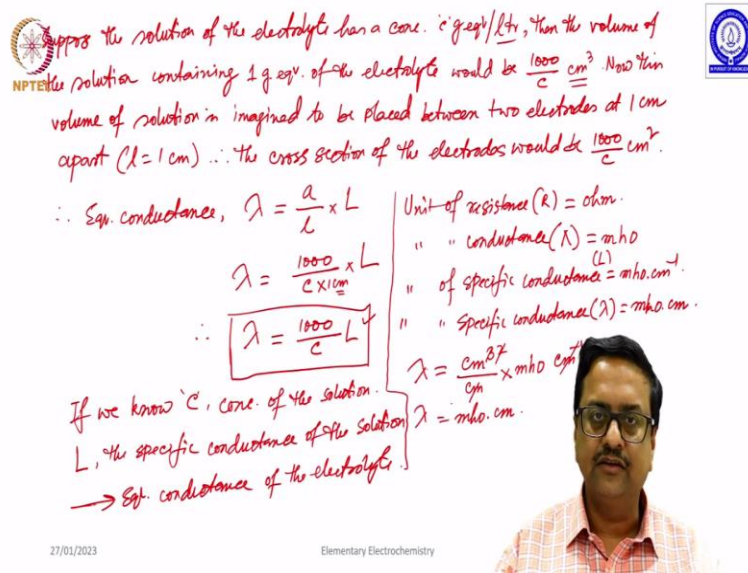 Suppos the solution of the electrolyte has a conc. 'c' g eqv/ltr, then the volume of
the solution containing 1 g eqv. of the electrolyte would be 1000/c cm³. Now this
NPTEL
volume of solution is imagined to be placed between two electrodes at 1 cm
apart (l = 1 cm) ∴ the cross section of the electrodes would be 1000/c cm².
∴ Eqv. conductance, λ = a/l × L
λ = 1000/(c × 1cm) × L
∴ λ = 1000/c L
If we know 'C', conc. of the solution.
L, the specific conductance of the solution
→ Eqv. conductance of the electrolyte.
Unit of resistance (R) = ohm.
" " conductance (Λ) = mho
(L)
" of specific conductance = mho.cm⁻¹.
" " specific conductance (λ) = mho.cm.
λ = cm³/cm × mho cm⁻¹
λ = mho.cm.
27/01/2023
Elementary Electrochemistry